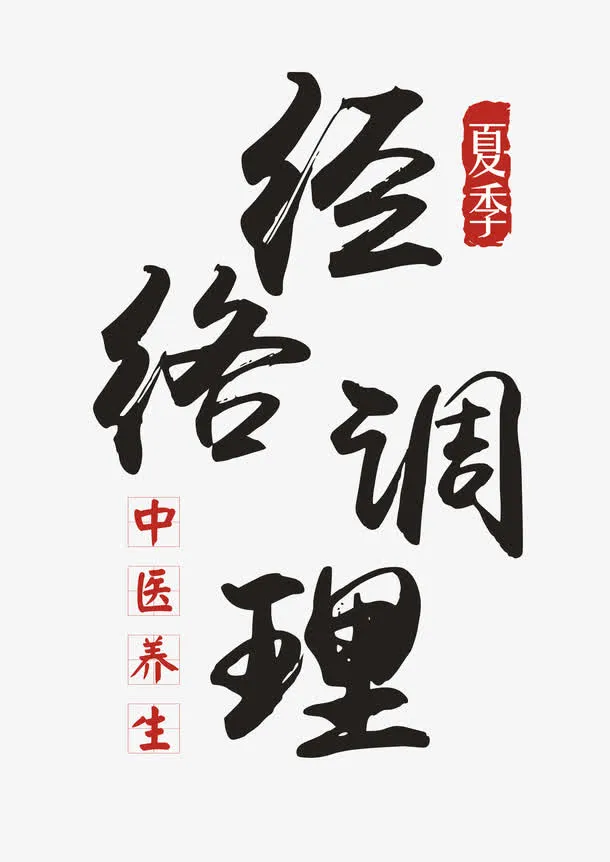 夏季
经络
调理
中医养生